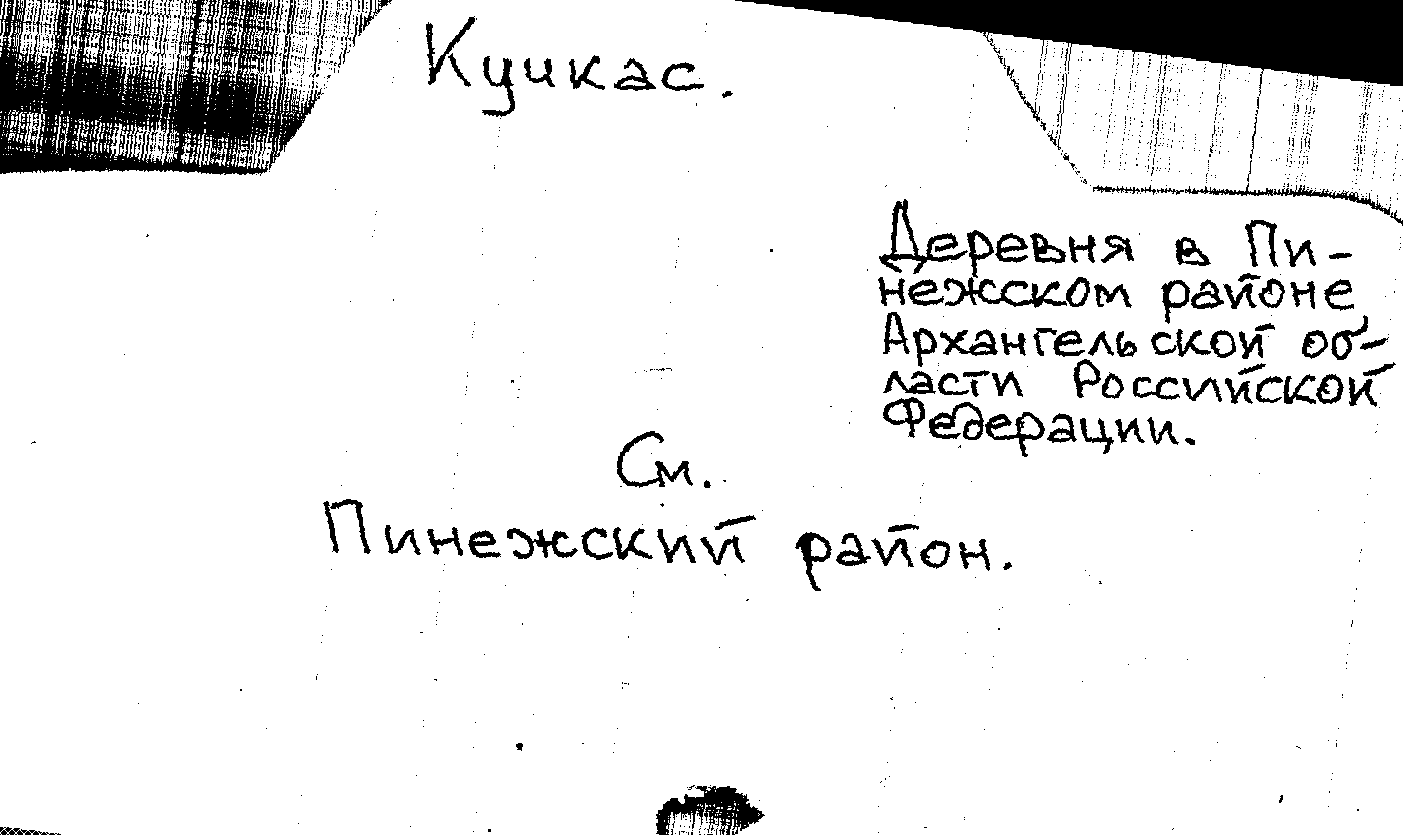 Кучкас.
Деревня в Пи-
нежском районе
Архангельской об-
ласти Российской
Федерации.
См.
Пинежский район.